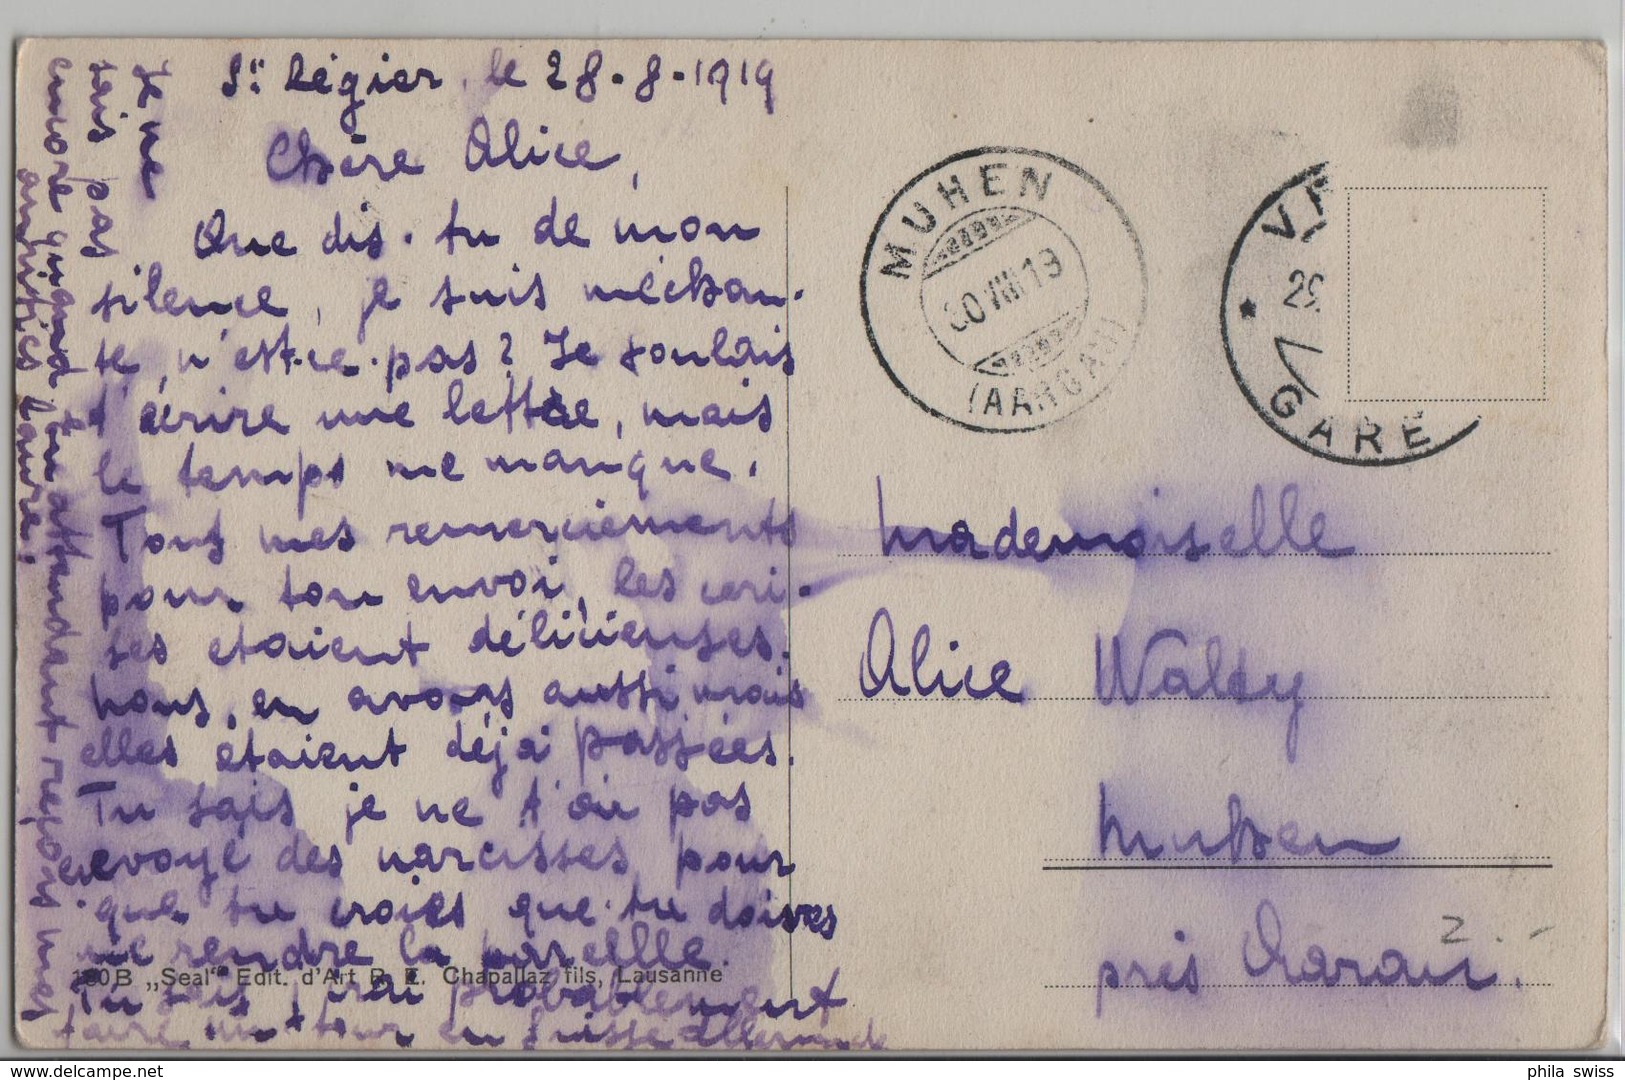 St. Légier, le 28-8-1919
Chère Alice,
Que dis-tu de mon
silence, je suis méchan-
te, n'est-ce-pas? Je voulais
t'écrire une lettre, mais
le temps me manque.
Tous mes remerciements
pour ton envoi, les ceri-
ses etaient délicieuses.
Nous, en avons aussi mais
elles étaient déjà passées.
Tu sais je ne t'ai pas
envoyé des narcisses pour
que tu croies que tu doives
me rendre la pareille
Tu sais j'irai probablement
faire un tour en Suisse allemande
Je ne
sais pas
encore quand. En attendant reçois mes
amitiés Laure.
190B „Seal" Edit. d'Art R. E. Chapallaz fils, Lausanne
MUHEN
30 VIII 19
(AARGAU)
VE
29
GARE
Mademoiselle
Alice Walty
Muhen
près Aarau.
2.-
phila swiss